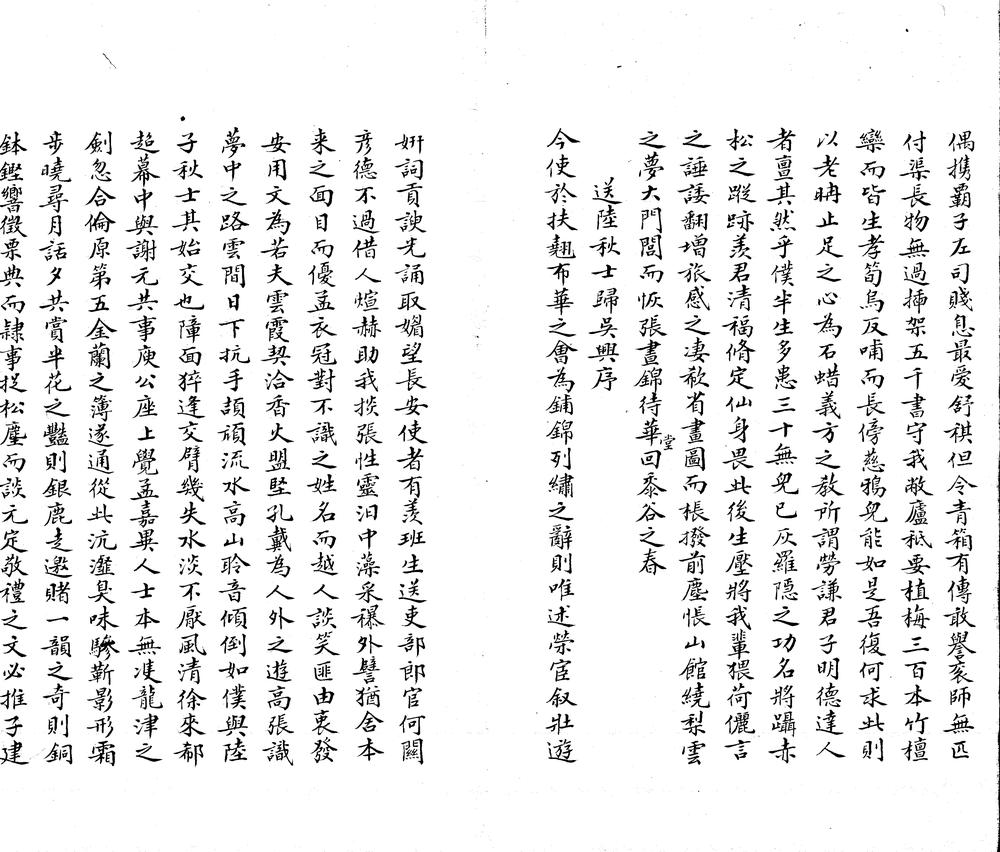 偶携覇子左司賤息最愛舒祺但令青箱有傳敢譽袞師無匹
付渠長物無過揷架五千書守我敝廬秪要植梅三百本竹檀
欒而皆生孝筍烏反哺而長傍慈鴉兒能如是吾復何求此則
以老冉止足之心為石蜡義方之教所謂勞謙君子明德達人
者亶其然乎僕半生多患三十無兒已灰羅隱之功名將躡赤
松之蹤跡羨君清福脩定仙身畏此後生壓將我輩猥荷儷言
之諈諉翻增旅感之凄欷省畫圖而棖撥前塵悵山館繞梨雲
之夢大門閭而恢張晝錦待華堂回黍谷之春
送陸秋士歸吳興序
今使於扶翹布華之會為鋪錦列繡之辭則唯述榮宦叙壯遊
姸詞貢諛先誦取媚望長安使者有羨班生送吏部郎官何關
彥德不過借人煊赫助我掞張性靈汨中藻采襮外譬猶舍本
来之面目而優孟衣冠對不識之姓名而越人談笑匪由衷發
安用文為若夫雲霞契洽香火盟堅孔戴為人外之遊高張識
夢中之路雲間日下抗手頡頏流水高山聆音傾倒如僕與陸
子秋士其始交也障面猝逢交臂幾失水淡不厭風清徐來郗
超幕中與謝元共事庾公座上覺孟嘉異人士本無雙龍津之
劍忽合倫原第五金蘭之簿遂通從此沆瀣臭味驂靳影形霜
步曉尋月話夕共賞半花之豔則銀鹿走邀賭一韻之奇則銅
鉢鏗響徵栗典而隷事捉松麈而談元定敬禮之文必推子建